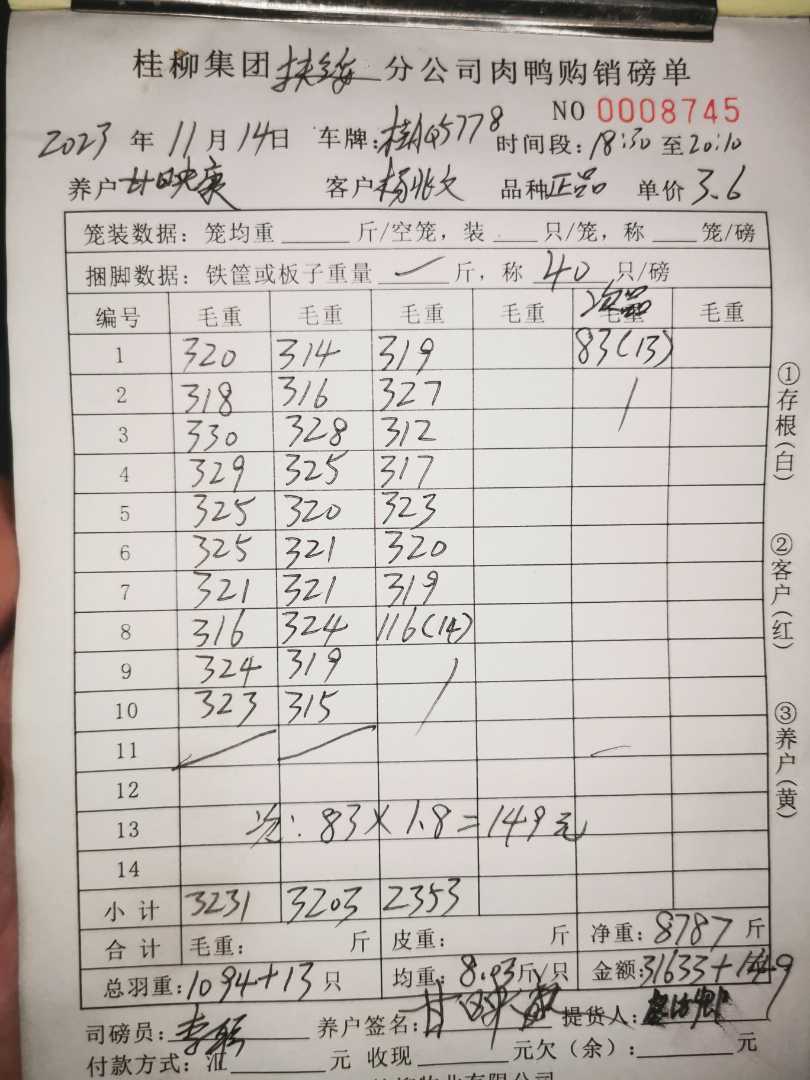 桂柳集团扶绥分公司肉鸭购销磅单
NO 0008745
2023年11月14日 车牌:桂AQ5778 时间段:18:30至20:10
养户甘 客户杨 品种正品 单价3.6
笼装数据:笼均重____斤/空笼,装___只/笼,称___笼/磅
捆脚数据:铁筐或板子重量 — 斤,称 40 只/磅
编号 毛重 毛重 毛重 毛重 次品 毛重
1 320 314 319 83(13)
2 318 316 327
3 330 328 312
4 329 325 317
5 325 320 323
6 325 321 320
7 321 321 319
8 316 324 116(14)
9 324 319
10 323 315
11
12
13 次:83×1.8=149元
14
小计 3231 3203 2353
合计 毛重: 斤 皮重: 斤 净重:8787斤
总羽重:1094+13只 均重:8.03斤/只 金额:31633+149
司磅员:李 养户签名:甘 提货人:
付款方式: 元 收现____元欠(余):____元
①存根(白)
②客户(红)
③养户(黄)